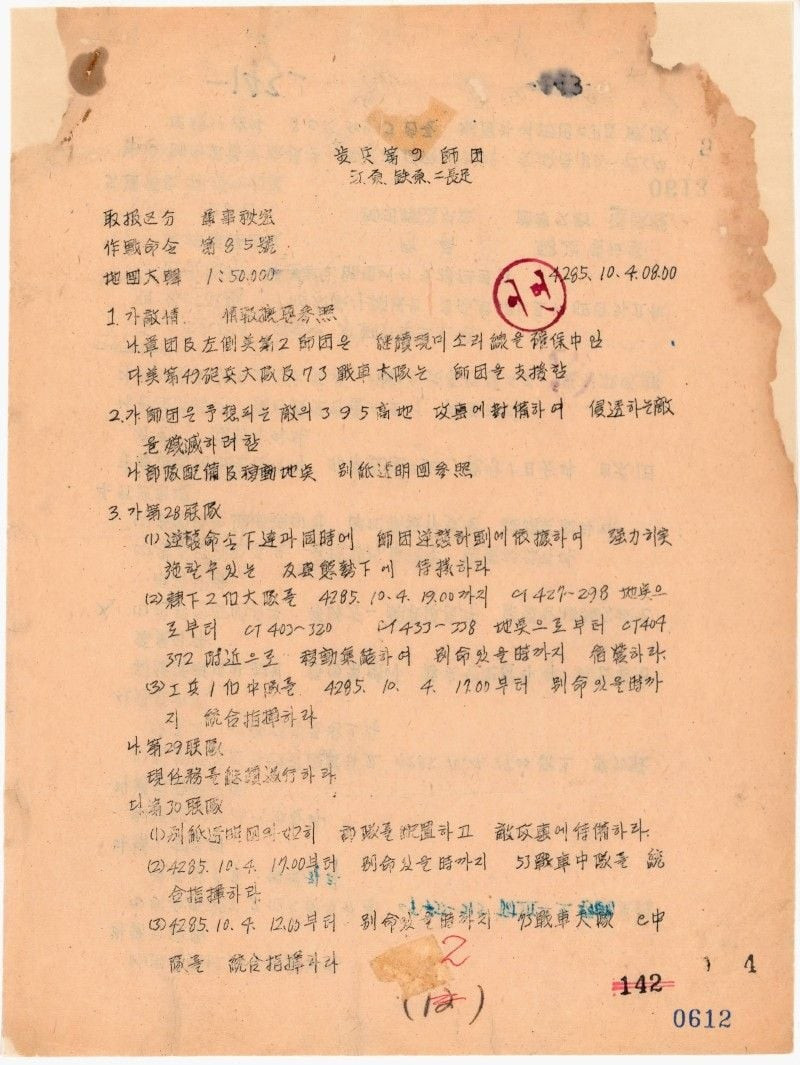 步兵第9師団
江原, 鉄原,
取报区分 軍事秘密
作戰命令 第85號
地図大韓 1:50.000 4285.10.4.08.00
이면
1.가敵情 情報 参照
나.軍団及左側美第2師団은 継續現미소리線을確保中임
다美第49砲兵大隊及73戰車大隊는 師団을支援함
2.가師団은予想되는敵의395高地 攻擊에對備하여 侵透하는敵
을殲滅하려함
나部隊配備及移動地点 別紙透明図参照
3.가第28联隊
(1)逆襲命令下達과同時에 師団逆襲計劃에依據하여 强力히实
施할수있는 態勢下에 待機하라
(2)隷下2個大隊를 4285.10.4.19.00까지 CT427~298 地点으
로부터 CT403~320 CT433~338 地点으로부터 CT404
372 附近으로 移動集結하여 別命있을時까지 待機하라.
(3)工兵1個中隊를 4285.10.4.17.00부터 別命있을時까
지 統合指揮하라
나.第29联隊
現任務를継續遂行하라
다.第30联隊
(1)別紙透明図와如히 部隊를配置하고 敵攻擊에待備하라.
(2)4285.10.4.17.00부터 別命있을時까지 53戰車中隊를 統
合指揮하라
(3)4285.10.4.12.00부터 別命있을時까지 73戰車大隊 C中
隊를 統合指揮하라
2
142
4
0612